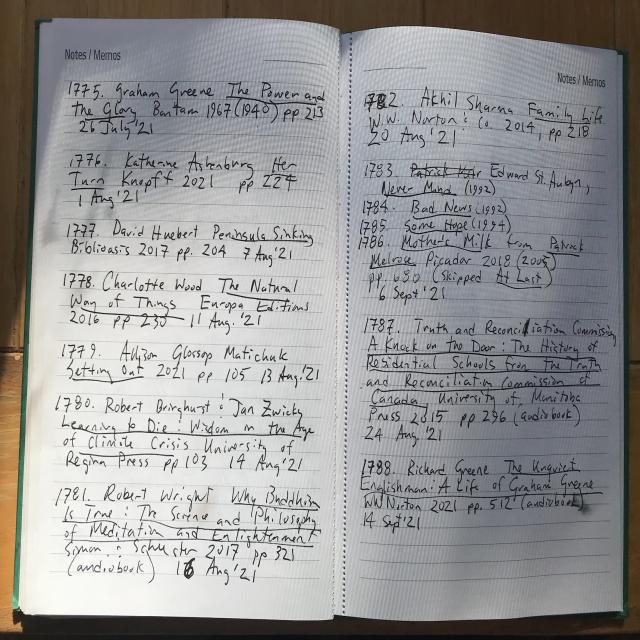 Notes / Memos
1775. Graham Greene The Power and
the Glory Bantam 1967 (1940) pp 213
26 July '21
1776. Katherine Ashenburg Her
Turn Knopff 2021 pp 224
1 Aug '21
1777. David Huebert Peninsula Sinking
Biblioasis 2017 pp. 204 7 Aug '21
1778. Charlotte Wood The Natural
Way of Things Europa Editions
2016 pp 230 11 Aug. '21
1779. Allison Glossop Matichuk
Setting Out 2021 pp 105 13 Aug. '21
1780. Robert Bringhurst & Jan Zwicky
Learning to Die: Wisdom in the Age
of Climate Crisis University of
Regina Press pp 103 14 Aug '21
1781. Robert Wright Why Buddhism
Is True: The Science and Philosophy
of Meditation and Enlightenment
Simon & Schuster 2017 pp 321
(audiobook) 16 Aug '21
Notes / Memos
1782. Akhil Sharma Family Life
W.W. Norton & Co. 2014, pp 218
20 Aug '21
1783. Patrick Edward St. Aubyn,
Never Mind (1992)
1784. Bad News (1992)
1785. Some Hope (1994)
1786. Mother's Milk from Patrick
Melrose Picador 2018 (2005)
pp 680 (skipped At Last)
6 Sept '21
1787. Truth and Reconciliation Commission
A Knock on the Door: The History of
Residential Schools from the Truth
and Reconciliation Commission of
Canada, University of Manitoba
Press 2015 pp 296 (audiobook)
24 Aug '21
1788. Richard Greene The Unquiet
Englishman: A Life of Graham Greene
WW Norton 2021 pp. 512 (audiobook)
14 Sept '21